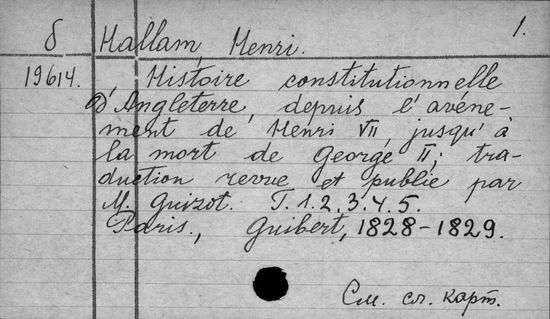 δ Hallam, Henri. 1.
19614. Histoire constitutionnelle
d'Angleterre, depuis l'avéne-
ment de Henri VII, jusqu'à
la mort de George II; tra-
duction revue et publié par
M. Guizot. T.1.2.3.4.5.
Paris., Guibert, 1828-1829.
См. сл. карт.